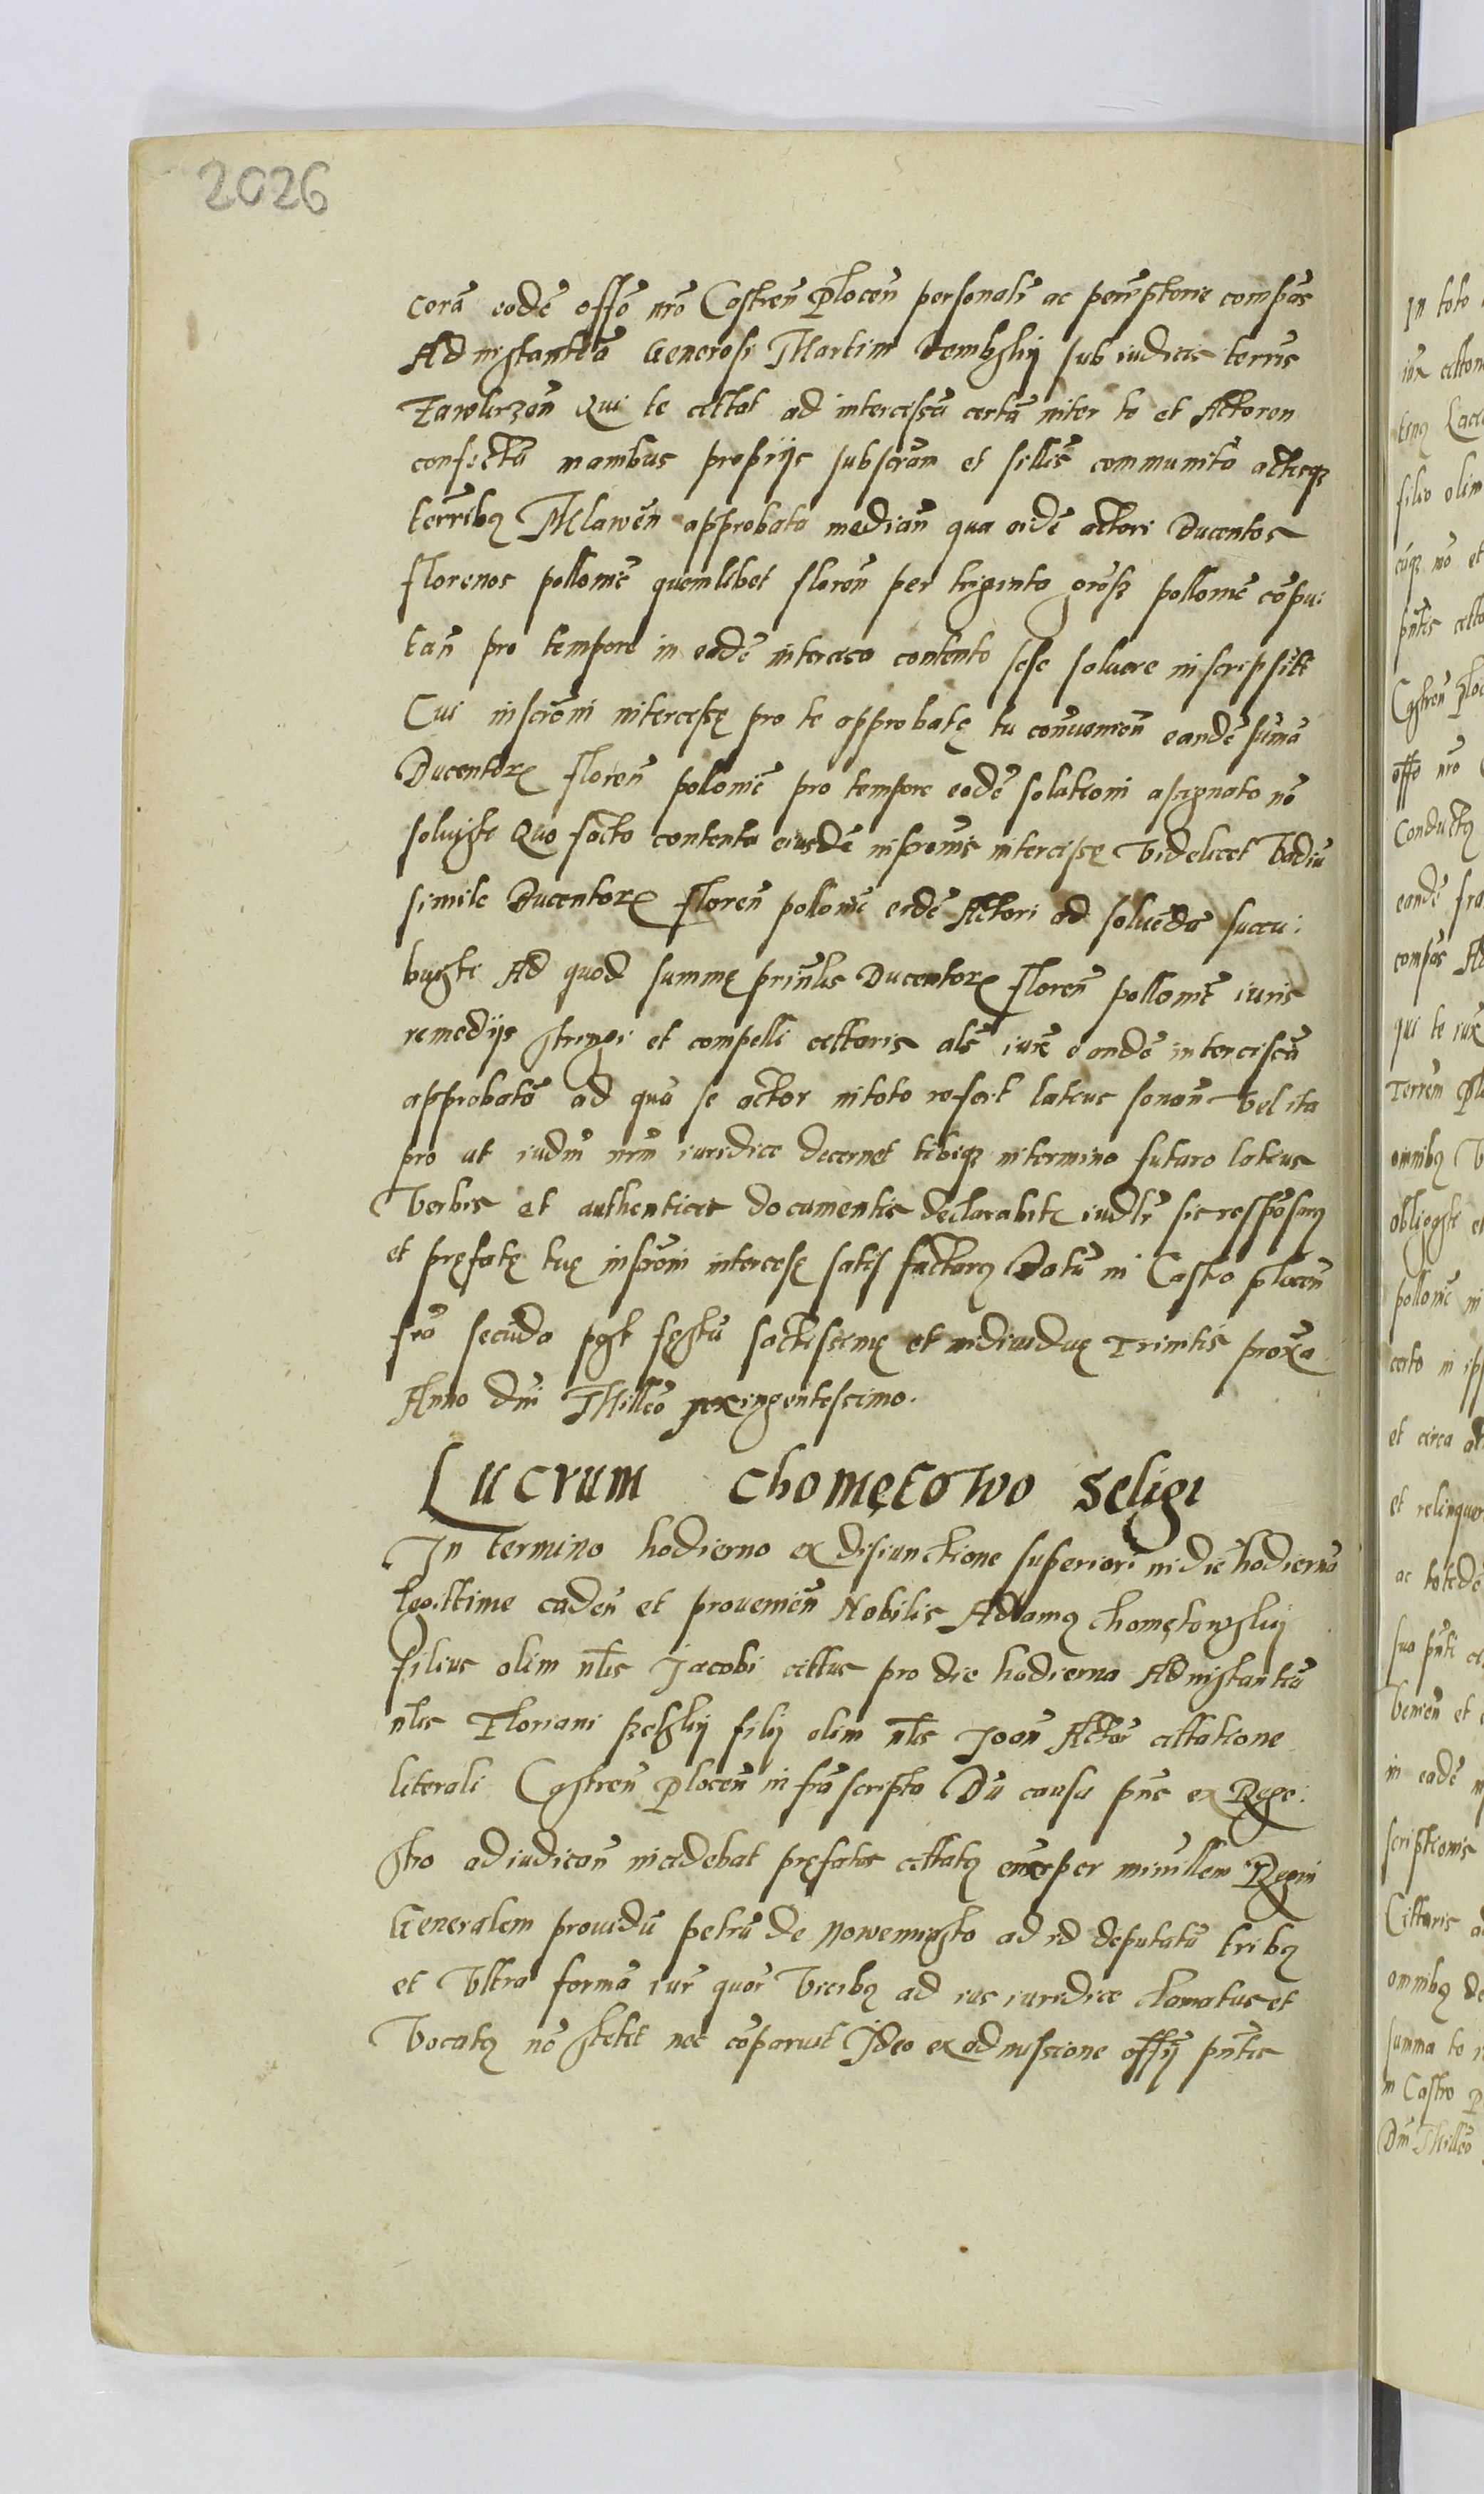 2026
corā eodē offō nrō Castreñ Ploceñ personalr̄ ac peremptorie compās
Ad instantiā Generosi Martini Dembskij sub iudicis terrīs
Zawkrzeñ Qui te cittat ad intercisā certā inter te et Actorem
confectā manibus propriis subscrām et sillīs communitā actisqȝ
terrībȝ Mlaweñ approbatā mediañ qua eidē actori Ducentos
florenos pollonīe quemlibet floreñ per triginta grossȝ pollonīe cōpu:
tañ pro tempore in eadē intercisa contento sese soluere inscripsisti
Cui inscrōni intercisę pro te approbatę tu cōnueneñ eandē sūmā
Ducentorꝝ floreñ polonīe pro tempore eodē solutioni assignato nō
soluisti Quo facto contenta eiusdē inscrōnis intercisę videlicet vadiū
simile Ducentorꝝ floreñ polonīe eidē Actori ad soluēdā succu:
buisti Ad quod summę prin̄lis Ducentorꝝ floreñ pollonīe iuris
remediis stringi et compelli cittaris als̄ iuxͤ eandē intercisā
approbatā ad quā se actor in toto refert latius sonañ vel ita
pro ut iudm̄ nrm̄ iuridice decernet tibiqȝ in termino futuro latius
verbis et authenticis documentis declarabitr iudlr̄ sic respōsurȝ
et pręfatę tuę inscrōni intercisę satisfacturȝ Datū in Castro ploceñ
frā secūda post festū sāctissimę et indiuiduę Trinitīs proxā
Anno dn̄i Millēō sexingentesimo.
Lucrum Chomętowo Seligi
In termino hodierno ex disiunctione superiori in diē hodiernā
legittime cadeñ et proueniēn Nobilis Adamȝ chomętowskij
filius olim nl̄is Jacobi cittus pro die hodierna Ad instantiā
nl̄is Floriani selskij filij olim nl̄is Joañ Actōr cittatione
literali Castreñ Ploceñ infrascripta Dū causa pn̄s ex Rege:
stro ad iudicañ incidebat pręfatus cittatȝ per minrllem Regni
Generalem prouidū petrū de Nowemiasto ad id deputatū tribȝ
et vltra formā iur̄ quor̄ vicibȝ ad ius iuridice clamatus et
vocatȝ nō stetit nec cōparuit Ideo ex admissione offij pn̄tis